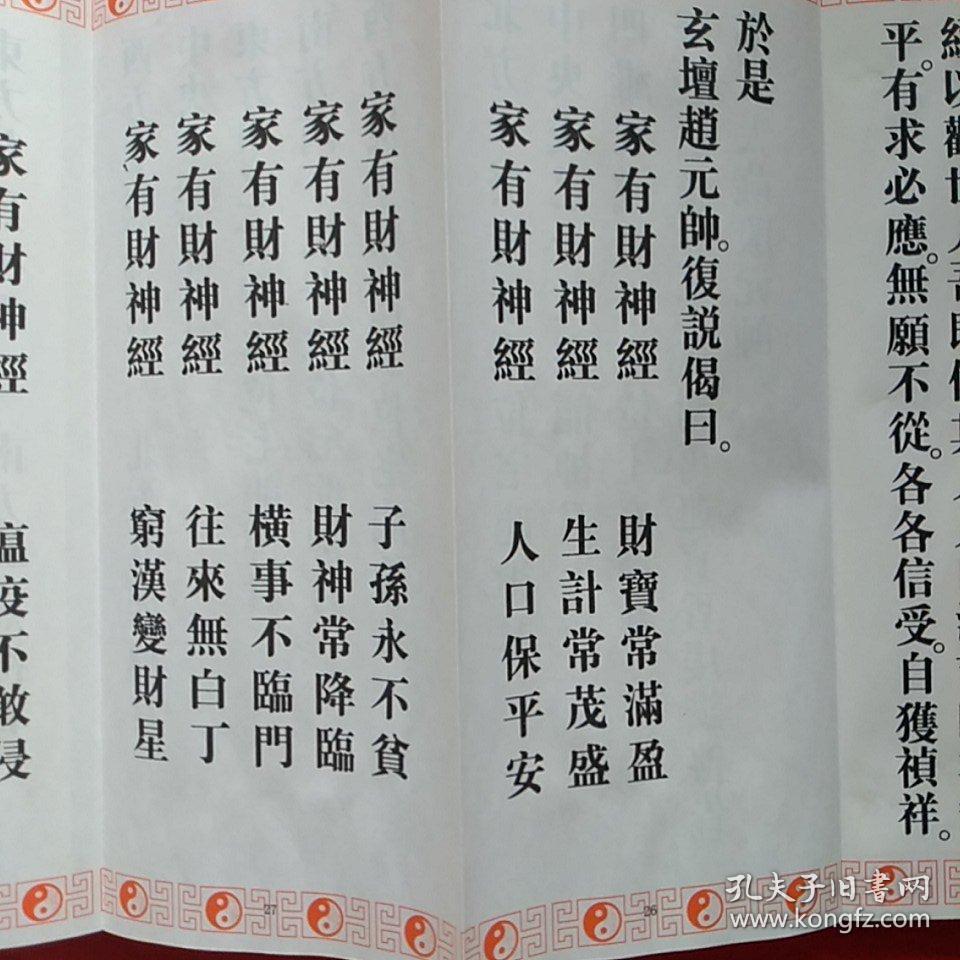 平。有求必應。無願不從。各各信受。自獲禎祥。
於是
玄壇趙元帥。復説偈曰。
家有財神經 財寶常滿盈
家有財神經 生計常茂盛
家有財神經 人口保平安
26
家有財神經 子孫永不貧
家有財神經 財神常降臨
家有財神經 橫事不臨門
家有財神經 往來無白丁
家有財神經 窮漢變財星
27
家有財神經 瘟疫不敢侵
孔夫子旧書网
www.kongfz.com